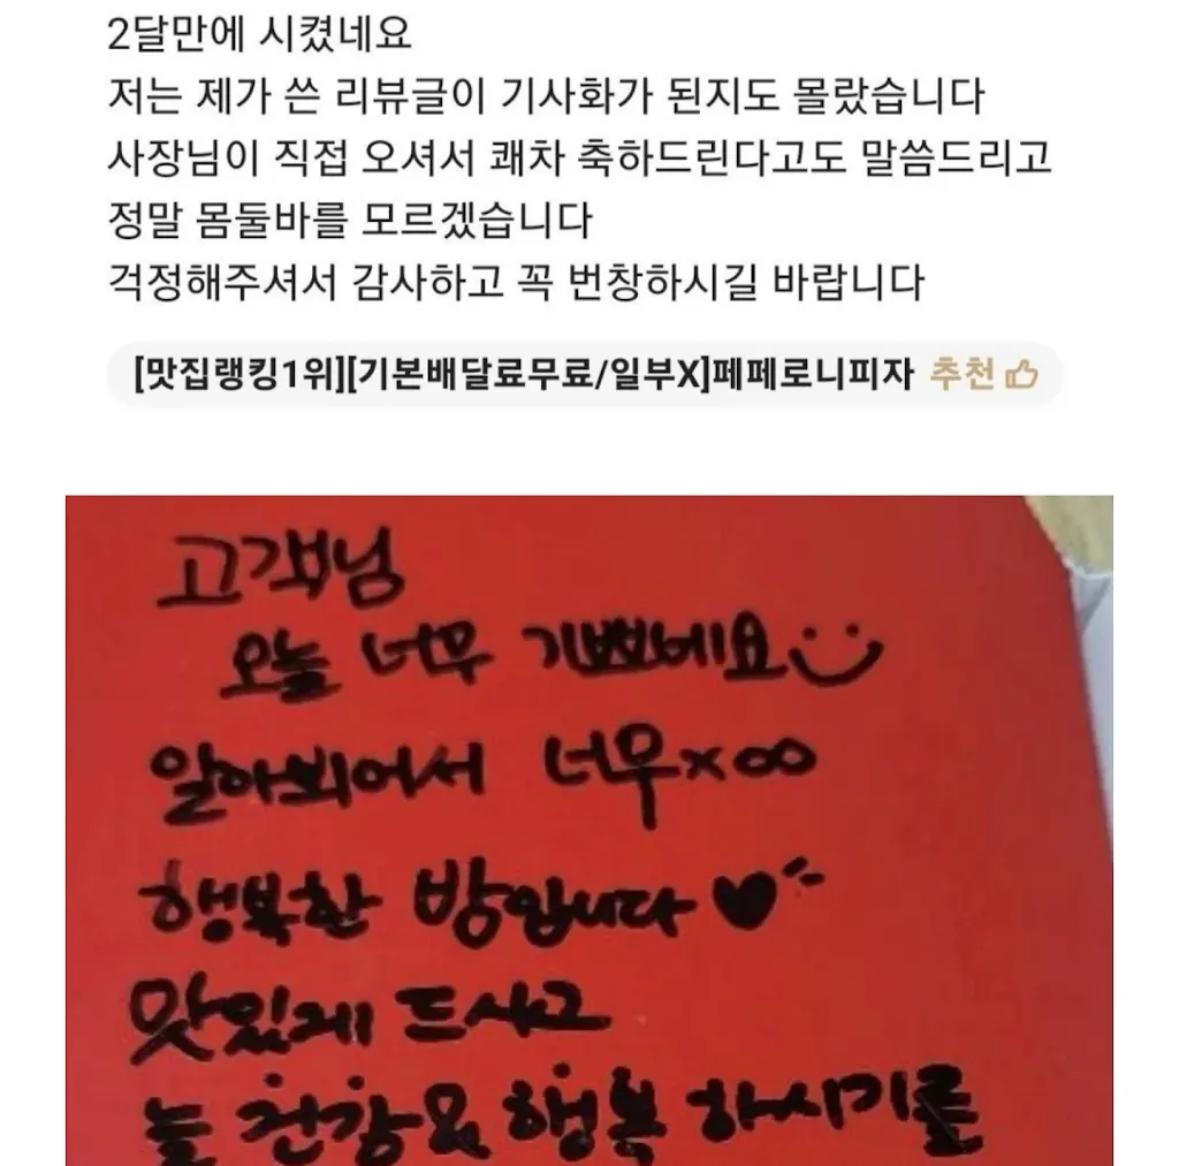 2달만에 시켰네요
저는 제가 쓴 리뷰글이 기사화가 된지도 몰랐습니다
사장님이 직접 오셔서 쾌차 축하드린다고도 말씀드리고
정말 몸둘바를 모르겠습니다
걱정해주셔서 감사하고 꼭 번창하시길 바랍니다
[맛집랭킹1위][기본배달료무료/일부X]페페로니피자 추천
고객님
오늘 너무 기쁘네요
알아뵈어서 너무x∞
행복한 밤입니다♥
맛있게 드시고
늘 건강&행복 하시기를